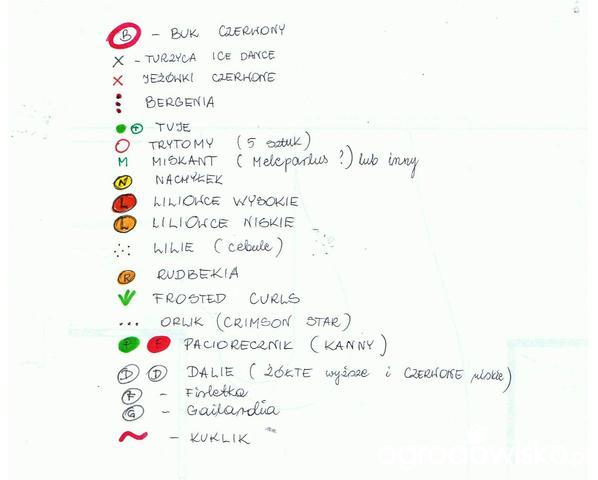 B - BUK CZERWONY
X - TURZYCA ICE DANCE
X JEŻÓWKI CZERWONE
BERGENIA
TUJE
TRYTOMY (5 sztuk)
M MISKANT (Malepartus ?) lub inny
N NACHYŁEK
L LILIOWCE WYSOKIE
L LILIOWCE NISKIE
LILIE (cebule)
R RUDBEKIA
FROSTED CURLS
ORLIK (CRIMSON STAR)
P P PACIORECZNIK (KANNY)
D D DALIE (ŻÓŁTE wyższe i CZERWONE niskie)
F - Firletka
G - Gailardia
- KUKLIK
ogrodowisko.pl